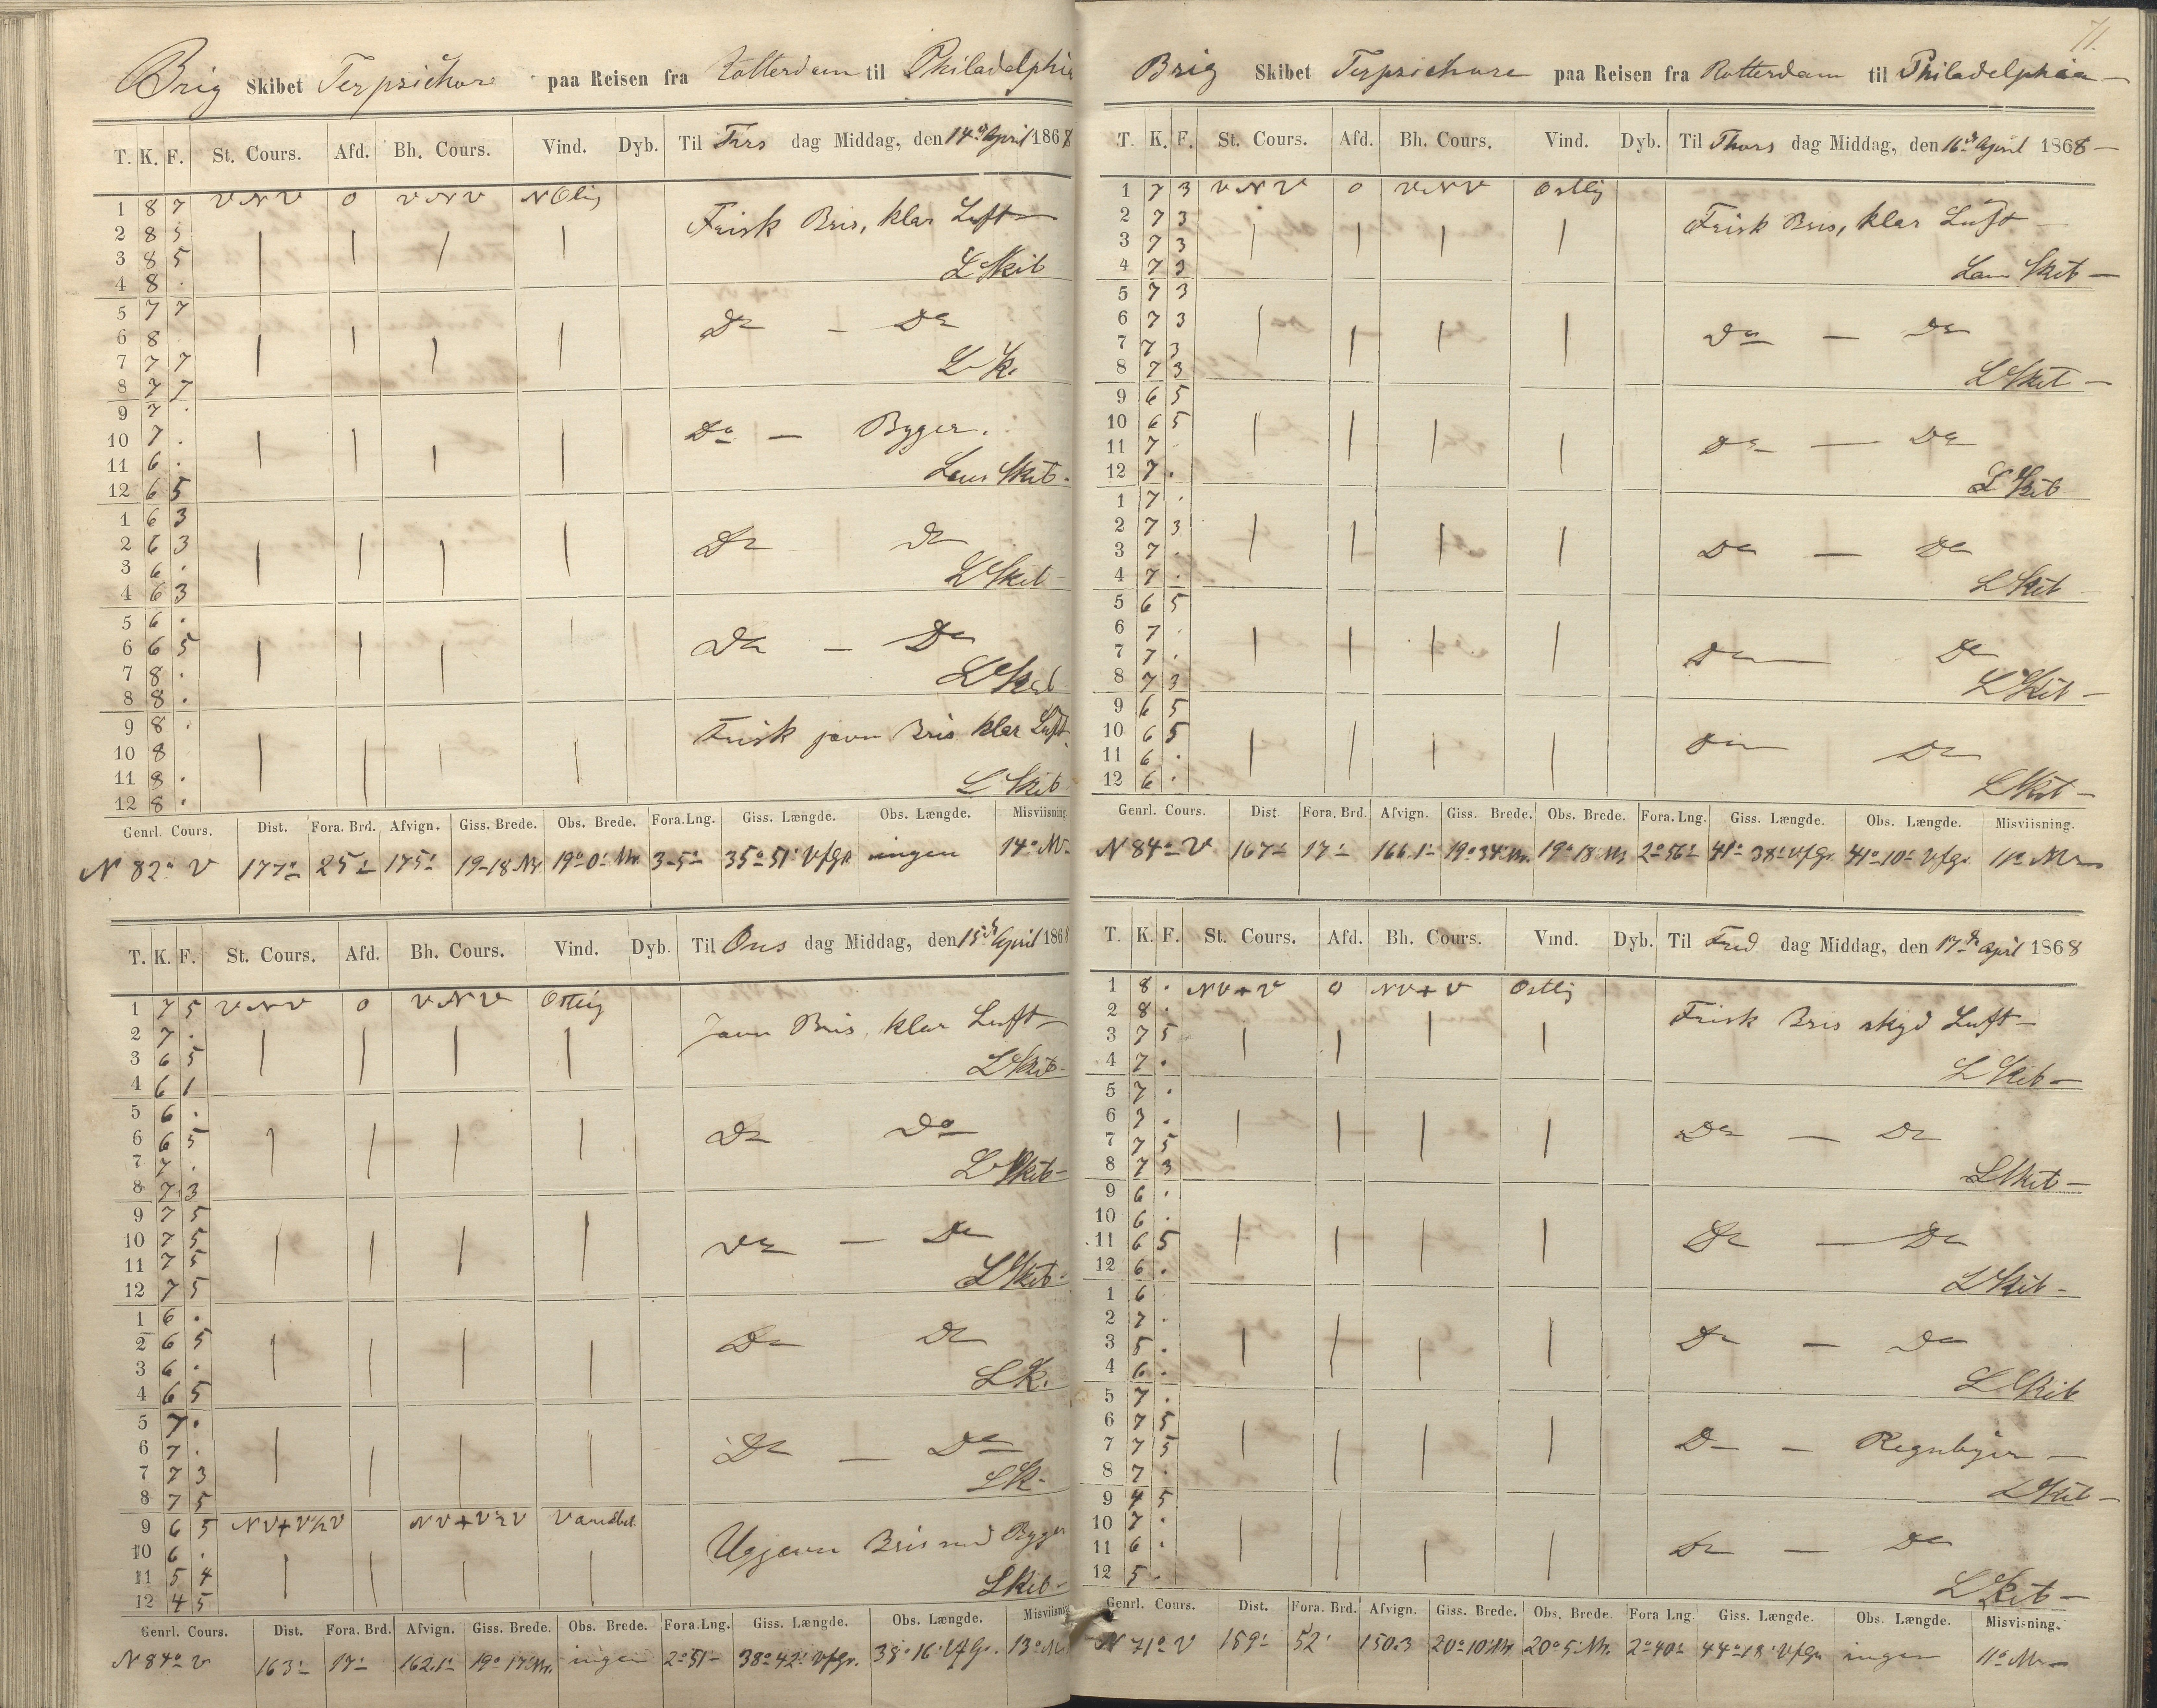 Brig Skibet Terpsichore paa Reisen fra Rotterdam til Philadelphia
T. K. F. St. Cours. Afd. Bh. Cours. Vind. Dyb. Til Tirs dag Middag, den 14d April 1868
1 8 7 VNV 0 VNV NOlig
2 8 5 Frisk Bris, klar Luft
3 8 5
4 8 . L Skib
5 7 7
6 8 Do — Do
7 7 7
8 7 7 L Sk.
9 7 .
10 7 . Do — Byger.
11 6 .
12 6 5 Læns Skib.
1 6 3
2 6 3 Do Do
3 6 .
4 6 3 L Skib
5 6 .
6 6 5 Do — Do
7 8 .
8 8 . L Skib
9 8 . Frisk jævn Bris klar Luft
10 8
11 8 .
12 8 . L Skib
Genrl. Cours. Dist. Fora. Brd. Afvign. Giss. Brede. Obs. Brede. Fora. Lng. Giss. Længde. Obs. Længde. Misviisning
N 82° V 177' 25' 175' 19-18 Nr. 19° 0' Nr. 3-5' 35° 51' V f Gr. ingen 14° Nv.
T. K. F. St. Cours. Afd. Bh. Cours. Vind. Dyb. Til Ons dag Middag, den 15d April 1868
1 7 5 VNV 0 VNV Ostlig
2 7 . Jævn Bris, klar Luft
3 6 5
4 6 1 L Skib
5 6 .
6 6 5 Do Do
7 7 .
8 7 3 L Skib
9 7 5
10 7 5 Do — Do
11 7 5
12 7 5 L Skib
1 6 .
2 6 5 Do Do
3 6 .
4 6 5 L Sk.
5 7 .
6 7 . Do — Do
7 7 3
8 7 5 L Sk.
9 6 5 NV+V½V NV+V½V Variabel
10 6 . Ujævn Bris med Byger
11 5 4
12 4 5 L Skib
Genrl. Cours. Dist. Fora. Brd. Afvign. Giss. Brede. Obs. Brede. Fora. Lng. Giss. Længde. Obs. Længde. Misviisning
N 84° V 163' 17' 162.1' 19° 17' Nr. ingen 2° 51' 38° 42' V f Gr. 38° 16' V f Gr. 13° Nv
71.
Brig Skibet Terpsichore paa Reisen fra Rotterdam til Philadelphia
T. K. F. St. Cours. Afd. Bh. Cours. Vind. Dyb. Til Thors dag Middag, den 16d April 1868
1 7 3 VNV 0 VNV Ostlig
2 7 3 Frisk Bris, klar Luft
3 7 3
4 7 3 Læns Skib
5 7 3
6 7 3 Do — Do
7 7 3
8 7 3 L Skib
9 6 5
10 6 5 Do — Do
11 7
12 7 . L Skib
1 7 .
2 7 3 Do — Do
3 7 .
4 7 . L Skib
5 6 5
6 7 . Do Do
7 7 .
8 7 3 L Skib
9 6 5
10 6 5 Do Do
11 6 .
12 6 . L Skib
Genrl. Cours. Dist Fora. Brd. Afvign. Giss. Brede. Obs. Brede. Fora. Lng. Giss. Længde. Obs. Længde. Misviisning.
N 84° V 167' 17' 166.1' 19° 34' Nr. 19° 18' Nr 2° 56' 41° 38' V f Gr. 41° 10' V f Gr. 11° Nv
T. K. F. St. Cours. Afd. Bh. Cours. Vind. Dyb. Til Fred dag Middag, den 17d April 1868
1 8 . NV+V 0 NV+V Ostlig
2 8 . Frisk Bris skyd Luft
3 7 5
4 7 . L Skib
5 7 .
6 7 . Do — Do
7 7 5
8 7 3 L Skib
9 6 .
10 6 . Do — Do
11 6 5
12 6 . L Skib
1 6
2 7 .
3 5 . Do — Do
4 6 . L Skib
5 7 .
6 7 5 Do — Regnbyer
7 7 5
8 7 . L Skib
9 4 5
10 7 .
11 6 . Do — Do
12 5 . L Skib
Genrl. Cours. Dist. Fora. Brd. Afvign. Giss. Brede. Obs. Brede. Fora Lng. Giss. Længde. Obs. Længde. Misvisning.
N 71° V 159' 52' 150.3 20° 10' Nr 20° 5' Nr. 2° 40' 44° 18' V f Gr ingen 11° Nv